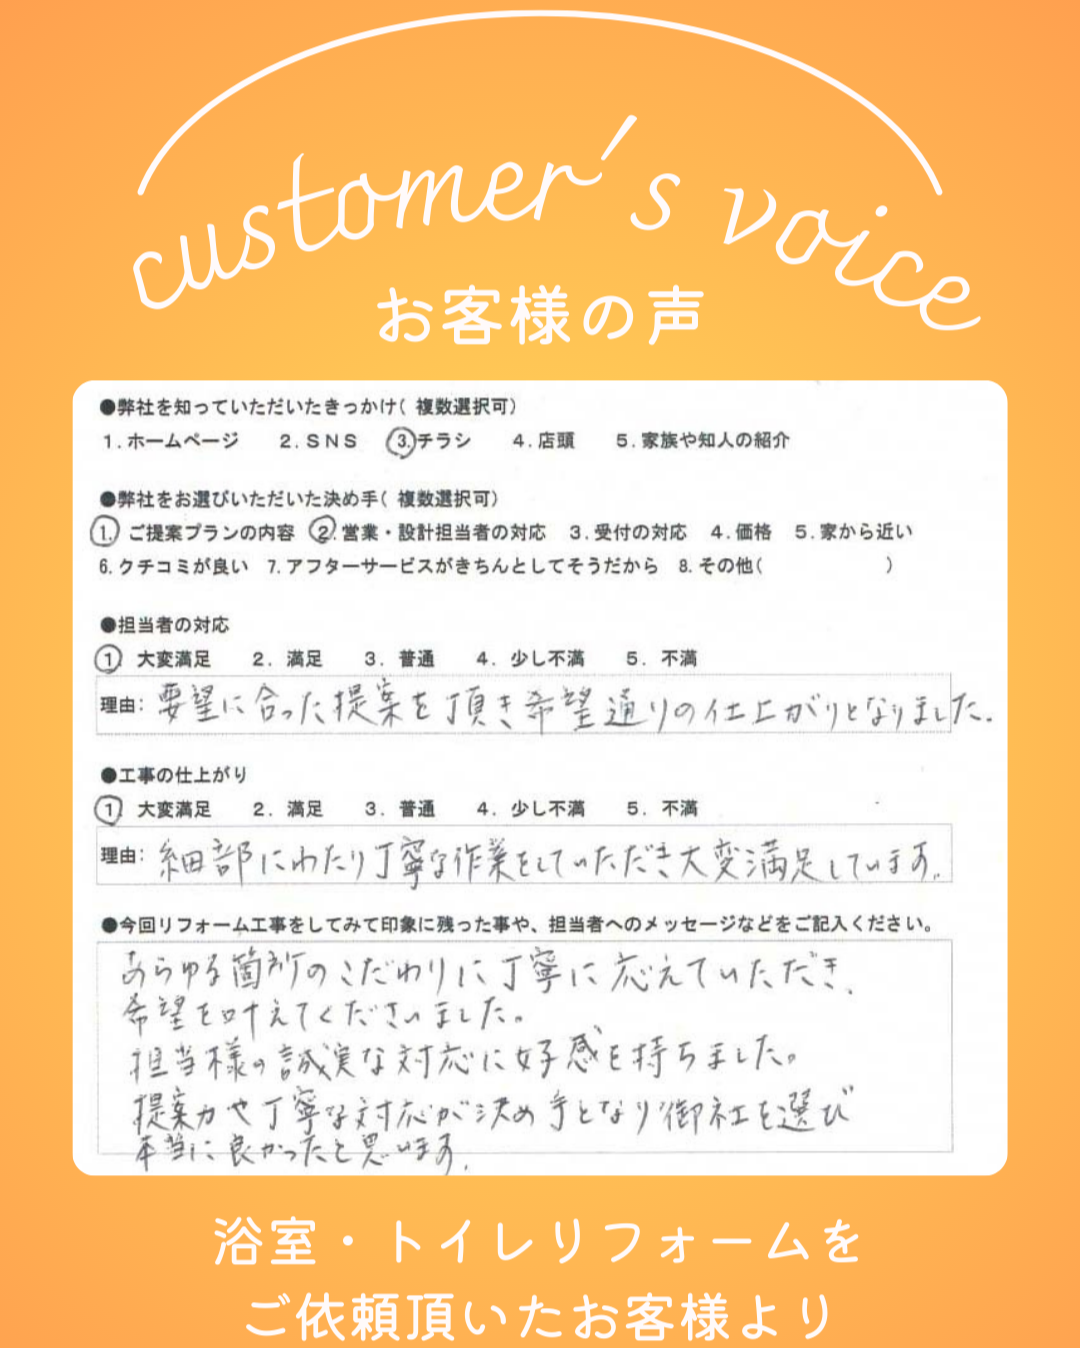 customer's voice
お客様の声
●弊社を知っていただいたきっかけ( 複数選択可)
1.ホームページ 2.SNS 3.チラシ 4.店頭 5.家族や知人の紹介
●弊社をお選びいただいた決め手( 複数選択可)
1. ご提案プランの内容 2.営業・設計担当者の対応 3.受付の対応 4.価格 5.家から近い
6.クチコミが良い 7.アフターサービスがきちんとしてそうだから 8.その他( )
●担当者の対応
1 大変満足 2. 満足 3. 普通 4. 少し不満 5. 不満
理由: 要望に合った提案を頂き希望通りの仕上がりとなりました.
●工事の仕上がり
1 大変満足 2. 満足 3. 普通 4. 少し不満 5. 不満
理由: 細部にわたり丁寧な作業をしていただき大変満足しています.
●今回リフォーム工事をしてみて印象に残った事や、担当者へのメッセージなどをご記入ください。
あらゆる箇所のこだわりに丁寧に応えていただき、
希望を叶えてくださいました。
担当様の誠実な対応に好感を持ちました。
提案力や丁寧な対応が決め手となり御社を選び
本当に良かったと思います.
浴室・トイレリフォームを
ご依頼頂いたお客様より